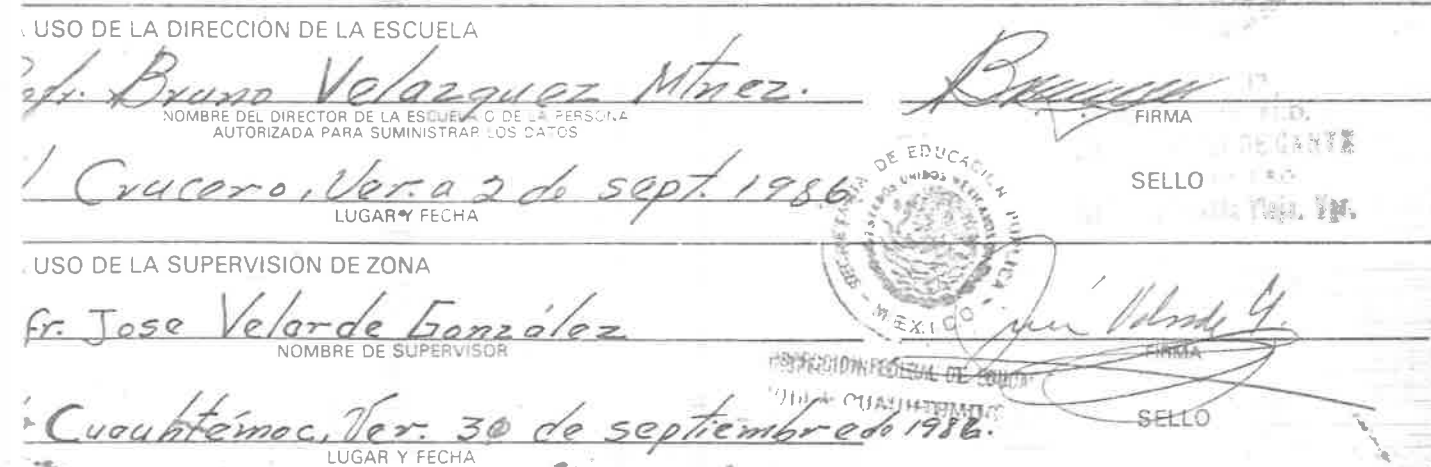 USO DE LA DIRECCIÓN DE LA ESCUELA
Profr. Bruno Velazquez Mtnez.
NOMBRE DEL DIRECTOR DE LA ESCUELA O DE LA PERSONA
AUTORIZADA PARA SUMINISTRAR LOS DATOS
FIRMA
DE GANTE
Crucero, Ver. a 2 de sept. 1986
LUGAR Y FECHA
SELLO
Vieja, Ver.
SECRETARIA DE EDUCACION PUBLICA - MEXICO
ESTADOS UNIDOS MEXICANOS
USO DE LA SUPERVISION DE ZONA
fr. Jose Velarde González
NOMBRE DE SUPERVISOR
FIRMA
FEDERAL DE
CUAUHTEMOC
Cuauhtémoc, Ver. 30 de septiembre de 1986.
LUGAR Y FECHA
SELLO